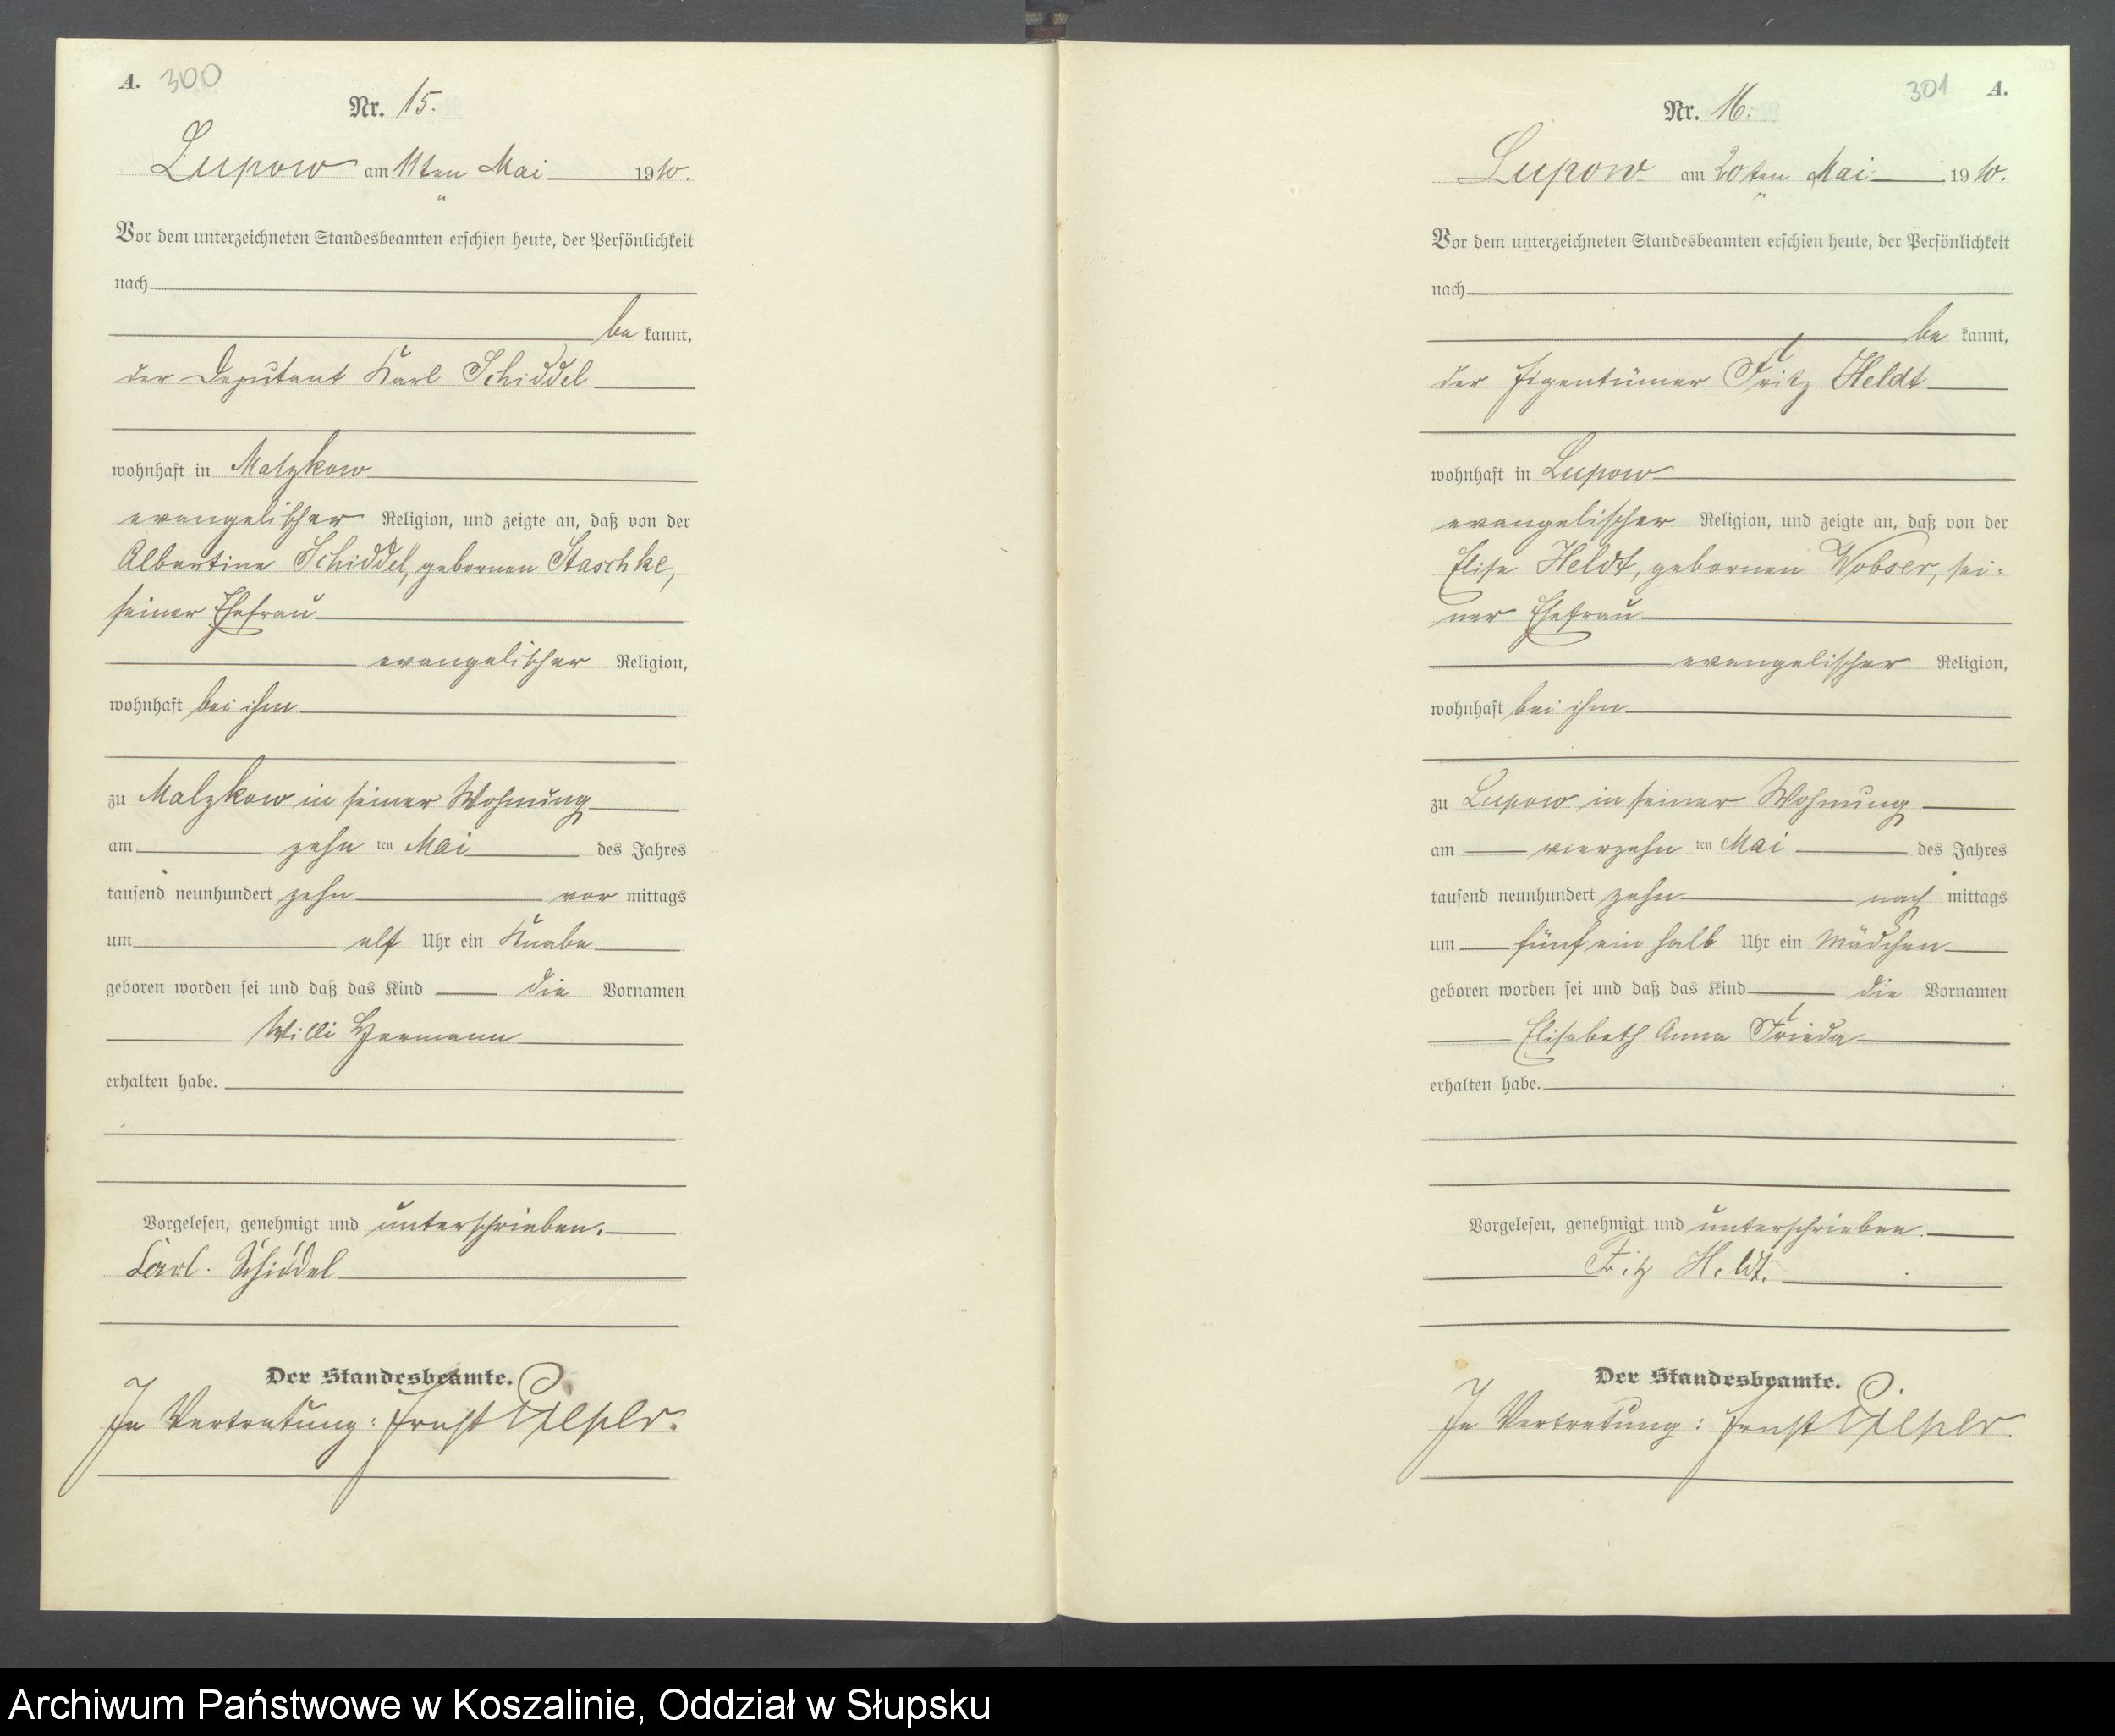 A. 300
Nr. 15.
Lupow am 11ten Mai 1910.
Vor dem unterzeichneten Standesbeamten erschien heute, der Persönlichkeit
nach
be kannt,
der Deputant Karl Schiddel
wohnhaft in Malzkow
evangelischer Religion, und zeigte an, daß von der
Albertine Schiddel, gebornen Staschke,
seiner Ehefrau
evangelischer Religion,
wohnhaft bei ihm
zu Malzkow in seiner Wohnung
am zehn ten Mai des Jahres
tausend neunhundert zehn vor mittags
um elf Uhr ein Knabe
geboren worden sei und daß das Kind die Vornamen
Willi Hermann
erhalten habe.
Vorgelesen, genehmigt und unterschrieben.
Karl. Schiddel
Der Standesbeamte.
In Vertretung: Ernst
301 A.
Nr. 16.
Lupow am 20ten Mai 1910.
Vor dem unterzeichneten Standesbeamten erschien heute, der Persönlichkeit
nach
be kannt,
der Eigentümer Fritz Heldt
wohnhaft in Lupow
evangelischer Religion, und zeigte an, daß von der
Elise Heldt, gebornen Wobser, sei-
ner Ehefrau
evangelischer Religion,
wohnhaft bei ihm
zu Lupow in seiner Wohnung
am vierzehn ten Mai des Jahres
tausend neunhundert zehn nach mittags
um fünf ein halb Uhr ein Mädchen
geboren worden sei und daß das Kind die Vornamen
Elisabeth Anna Frieda
erhalten habe.
Vorgelesen, genehmigt und unterschrieben.
Fritz Heldt.
Der Standesbeamte.
In Vertretung: Ernst
Archiwum Państwowe w Koszalinie, Oddział w Słupsku